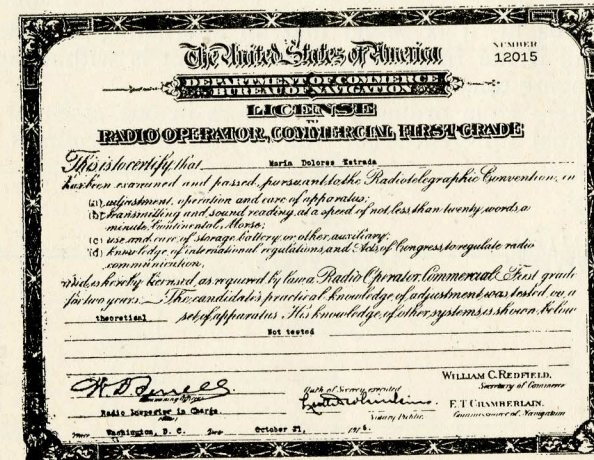 The United States of America
NUMBER
12015
DEPARTMENT OF COMMERCE
BUREAU OF NAVIGATION
LICENSE
TO
RADIO OPERATOR, COMMERCIAL FIRST GRADE
This is to certify that Maria Dolores Estrada
has been examined and passed, pursuant to the Radiotelegraphic Convention, in
(a) adjustment, operation and care of apparatus;
(b) transmitting and sound reading at a speed of not less than twenty words, a
minute, Continental, Morse;
(c) use and care of storage battery or other auxiliary;
(d) knowledge of international regulations, and Acts of Congress to regulate radio
communication,
and is hereby licensed, as required by law, a Radio Operator, Commercial First grade
for two years. The candidate's practical knowledge of adjustment was tested on a
theoretical set of apparatus. His knowledge of other systems is shown below
Not tested
Oath of Secrecy executed
WILLIAM C. REDFIELD,
Secretary of Commerce
Radio Inspector in Charge.
Notary Public.
E. T. CHAMBERLAIN.
Commissioner of Navigation
Place Washington, D. C. Date October 31, 191